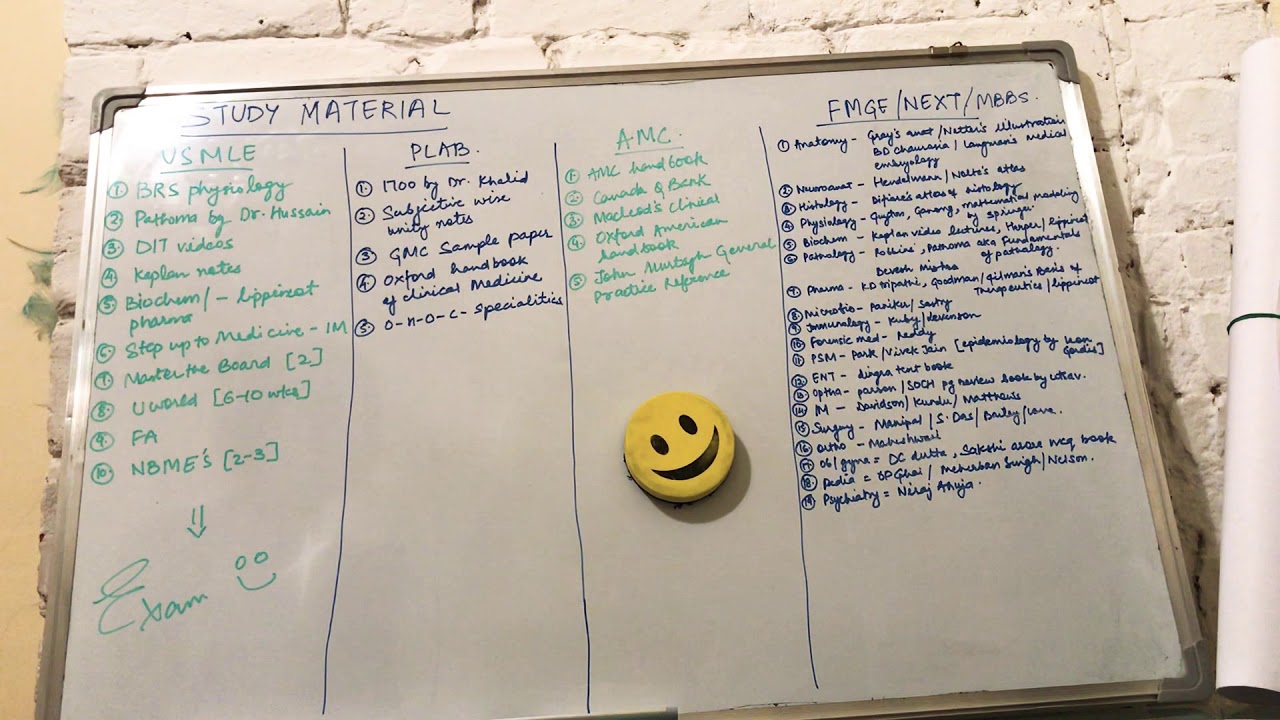 STUDY MATERIAL
USMLE
① BRS physiology
② Pathoma by Dr. Hussain
③ DIT videos
④ Kaplan notes
⑤ Biochem/ - lippincot
pharma
⑥ Step up to Medicine - IM
⑦ Master the Board [2]
⑧ Uworld [6-10 wks]
⑨ FA
⑩ NBME's [2-3]
⇓
Exam
PLAB.
① 1700 by Dr. Khalid
② Subjective wise
unity notes
③ GMC Sample paper
④ Oxford handbook
of clinical Medicine
⑤ O-H-O-C- Specialities
AMC.
① AMC handbook
② Canada Q Bank
③ Macleod's Clinical
④ Oxford American
handbook
⑤ John Murtagh General
Practice Reference
FMGE/NEXT/MBBS.
① Anatomy - Gray's anat/Netter's illustration
BD Chaurasia / Langman's medical
embryology
② Neuroanat - Hendelmann / Nolte's atlas
③ Histology - Difiore's atlas of histology
④ Physiology - Guyton, Ganong, mathematical modeling
by springer
⑤ Biochem - Kaplan video lectures, Harper/lippincot
⑥ Pathology - Robbins, Pathoma aka Fundamentals
of pathology.
Devesh Mishra
⑦ Pharma - KD tripathi, Goodman/Gilman's basis of
Therapeutics/lippincot
⑧ Microbio - Paniker/ Sastry
⑨ Immunology - Kuby/
⑩ Forensic med - Reddy
⑪ PSM - Park/Vivek Jain [epidemiology by Leon
Gordis]
⑫ ENT - dingra text book
⑬ Optha - parson/SOCH pg review book by
⑭ IM - Davidson/Kundu/Matthews
⑮ Surgery - Manipal/S.Das/Bailey/Love.
⑯ Ortho - Maheshwari
⑰ ob/gyna = DC dutta, Sakshi arora mcq book
⑱ Pedia = OP Ghai/ Meherban Singh/Nelson.
⑲ Psychiatry = Niraj Ahuja.